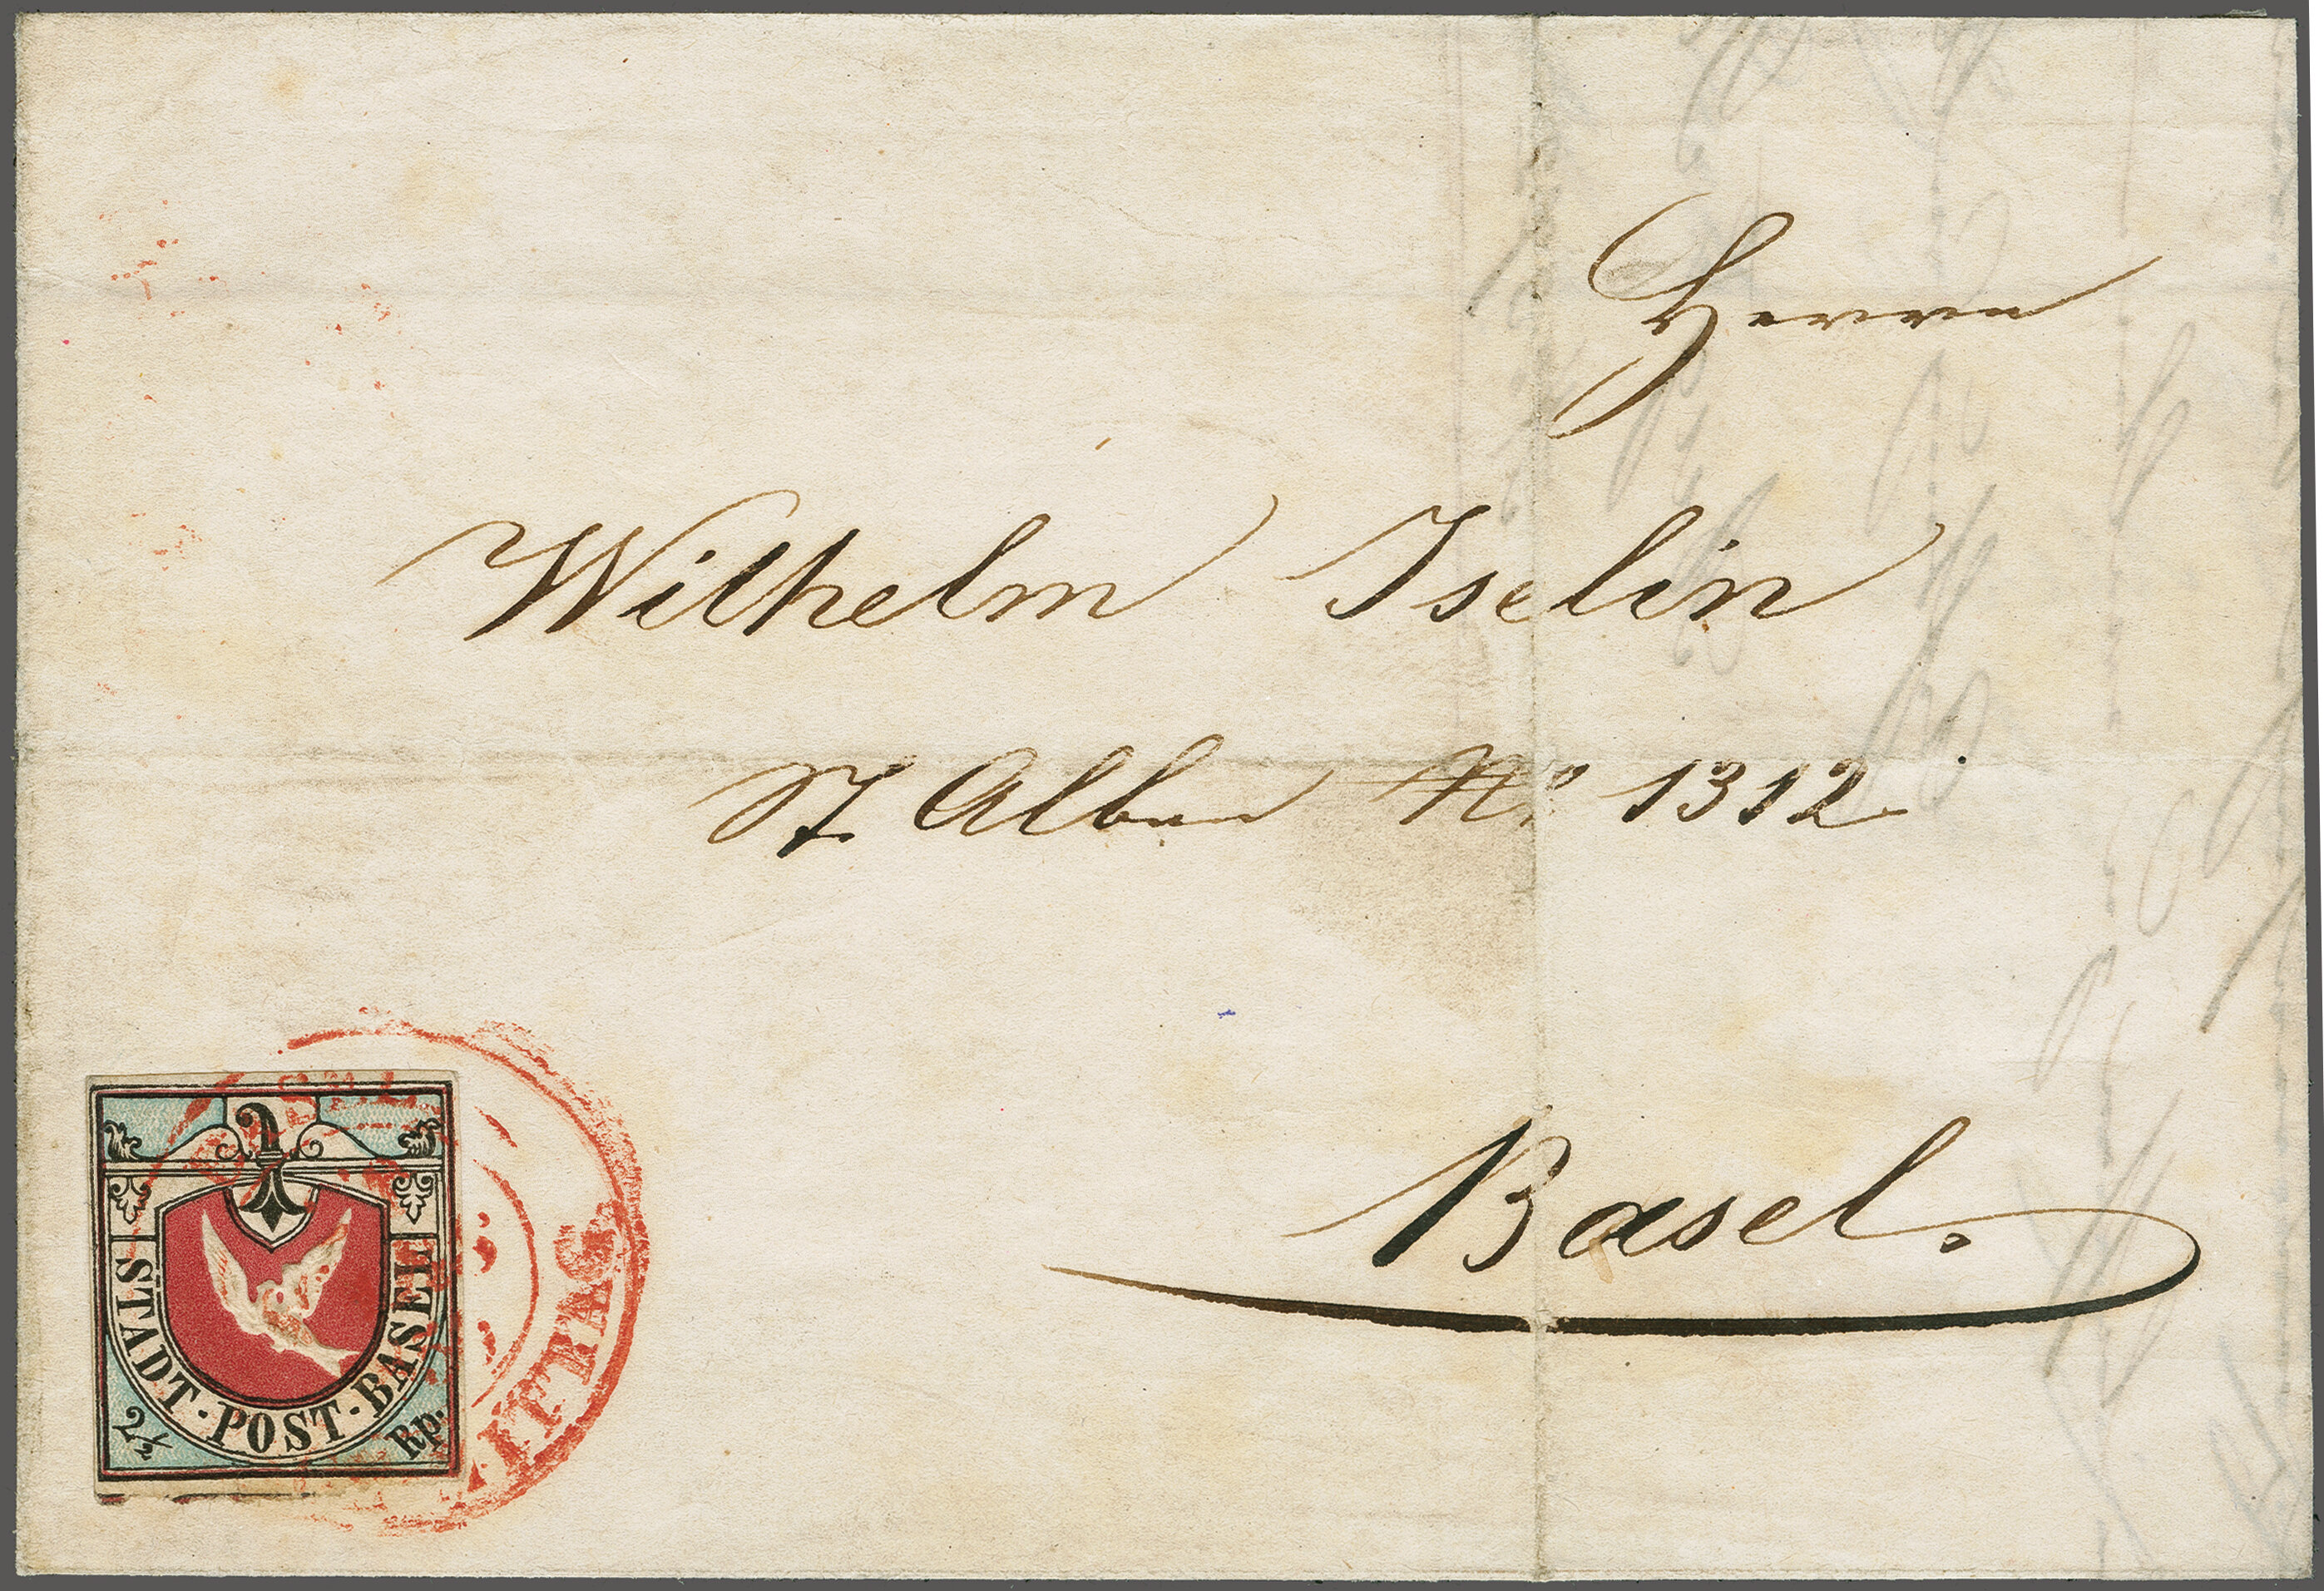 Herrn
Wilhelm Iselin
St Alban No 1312
Basel.
STADT·POST·BASEL
2½ Rp.